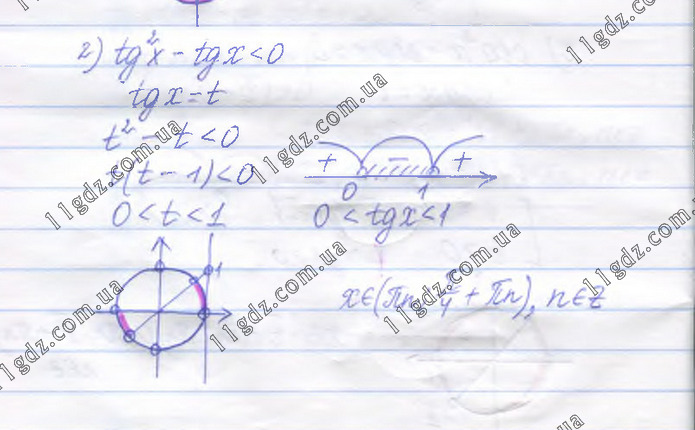 2) tg²x - tgx < 0
tgx = t
t² - t < 0
t(t - 1) < 0
+ - +
0 1
0 < t < 1
0 < tgx < 1
1
x∈(πn; π/4 + πn), n∈Z
11gdz.com.ua
11gdz.com.ua
11gdz.com.ua
11gdz.com.ua
11gdz.com.ua
11gdz.com.ua
11gdz.com.ua